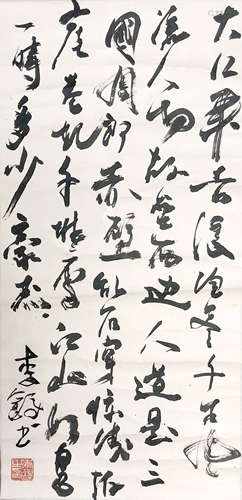 大江東去浪淘尽千古風
流人物故壘西边人道是三
國周郎赤壁乱石穿惊涛拍
岸卷起千堆雪江山如畫
一時多少豪杰
李鐸书